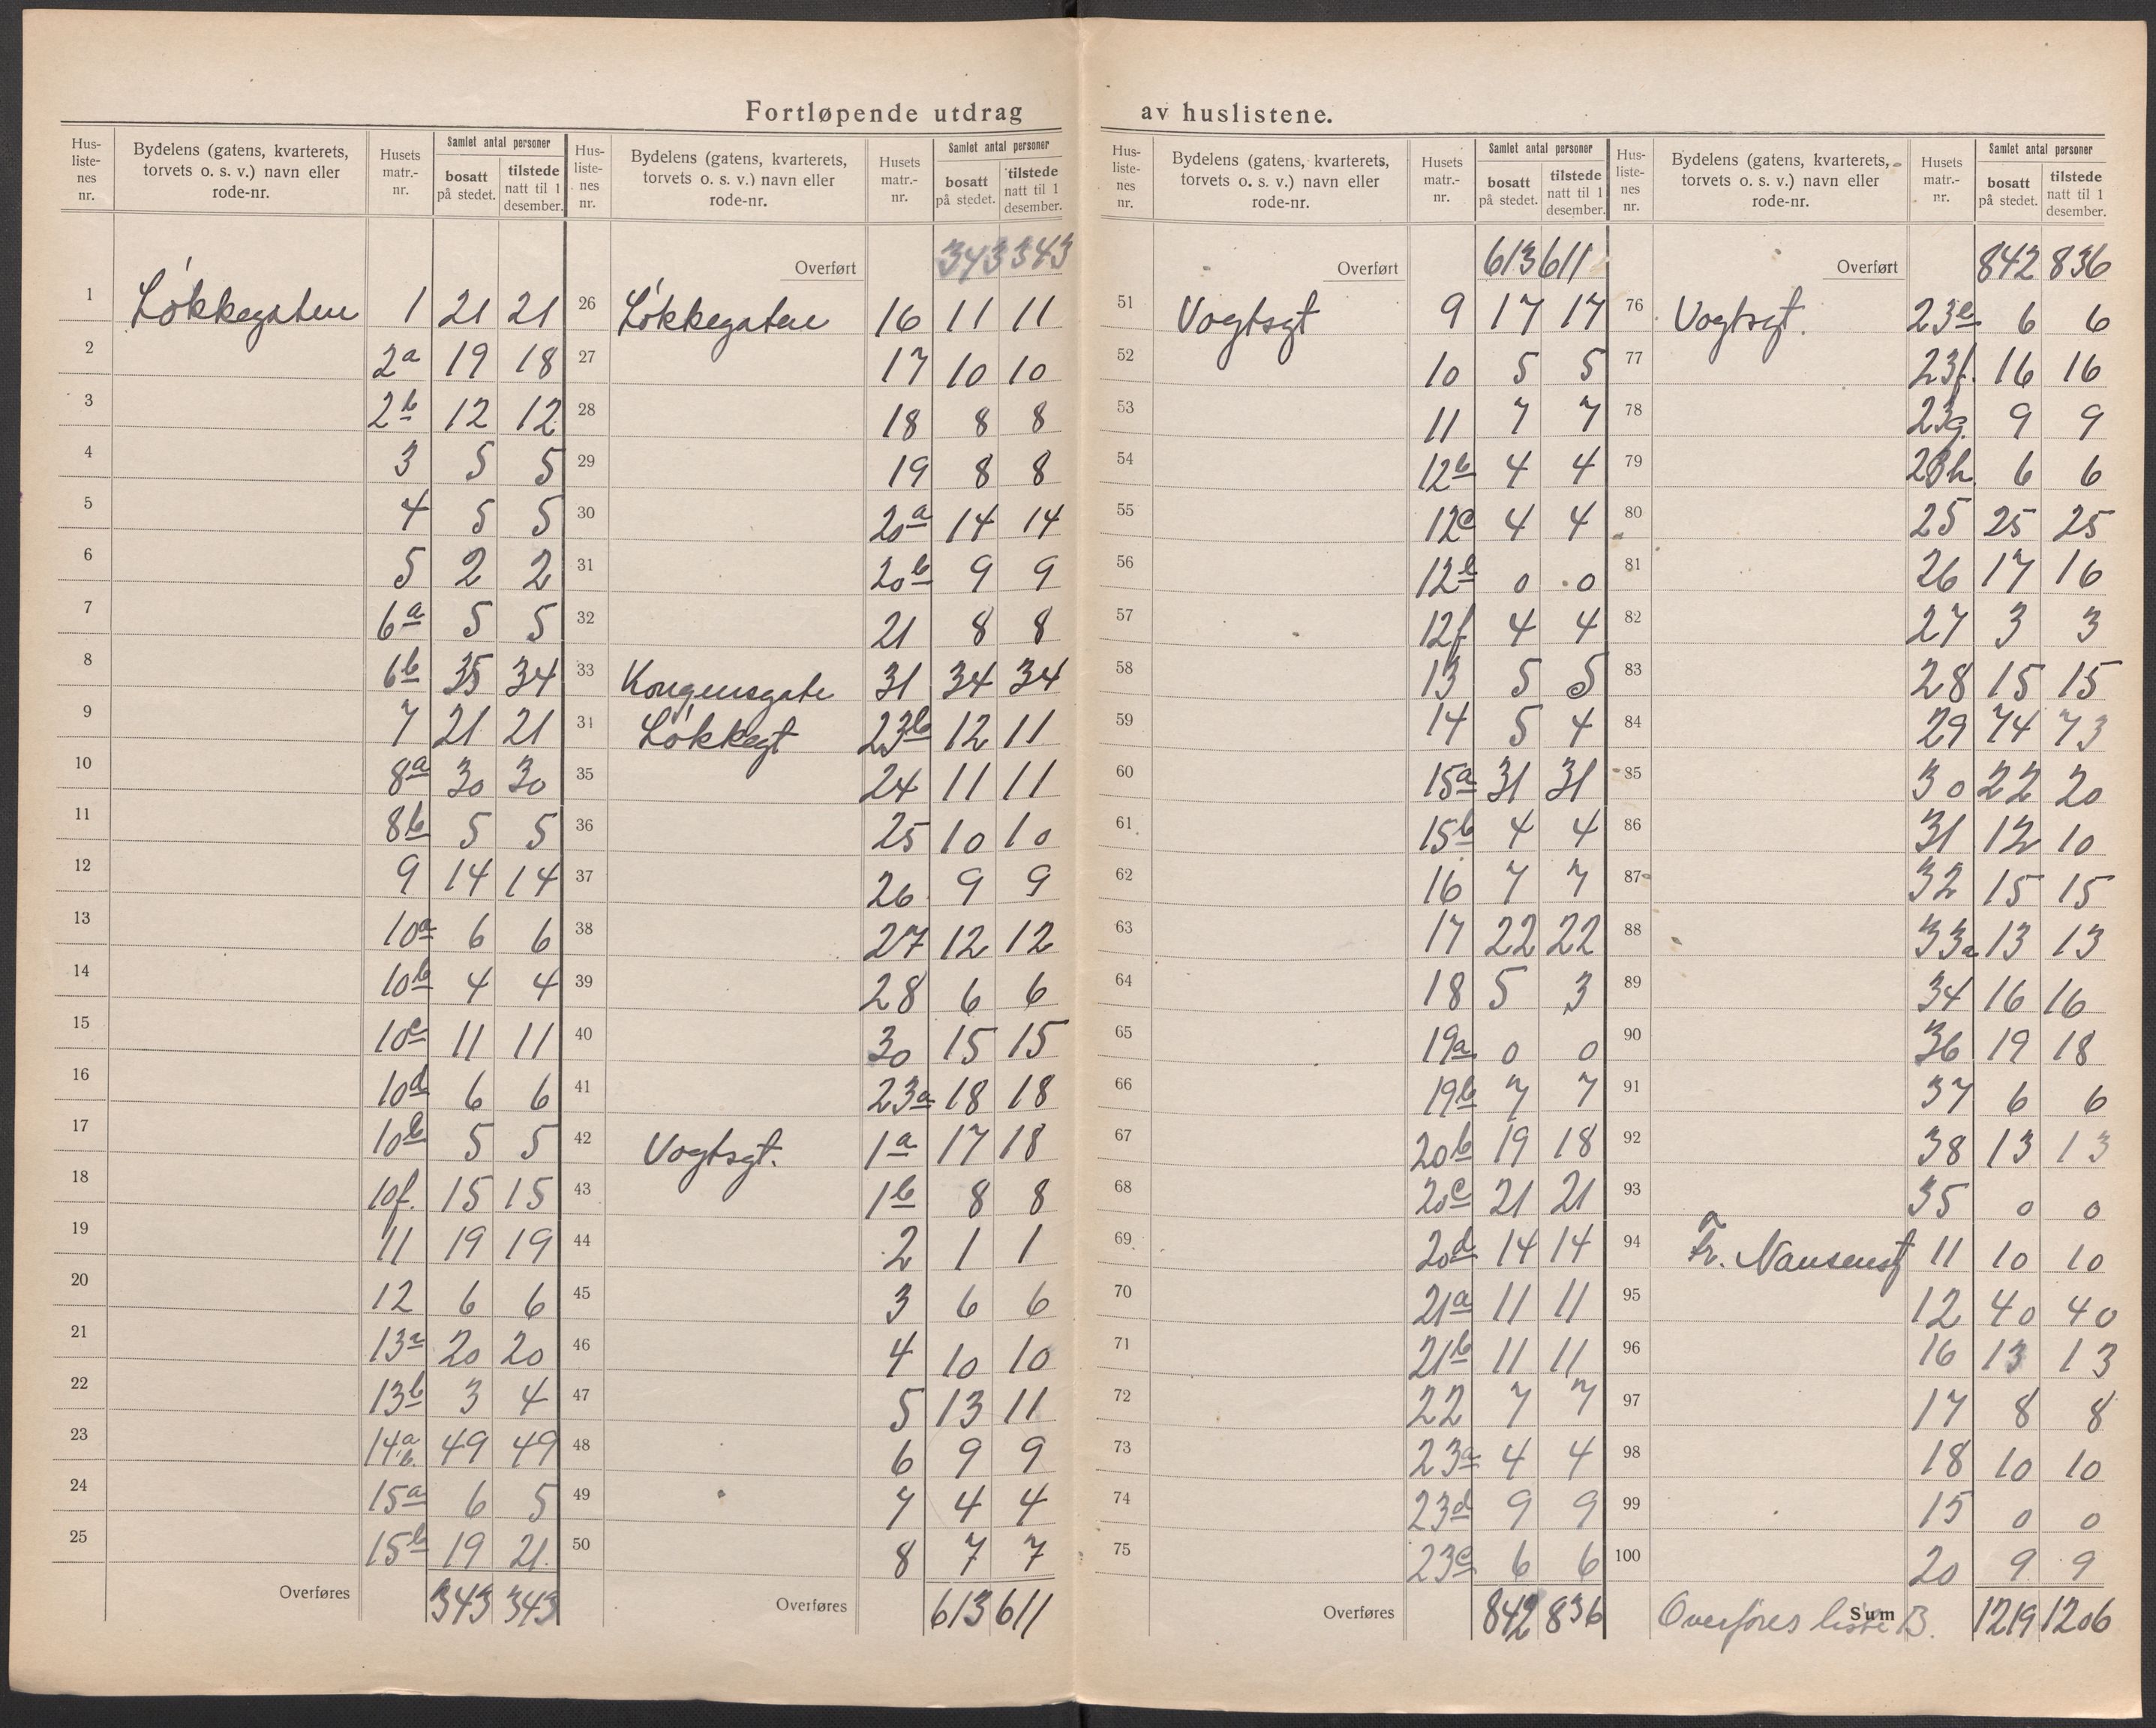 Fortløpende utdrag av huslistene.
Hus-liste-nes nr. | Bydelens (gatens, kvarterets, torvets o. s. v.) navn eller rode-nr. | Husets matr.-nr. | Samlet antal personer bosatt på stedet. | tilstede natt til 1 desember.
1 Løkkegaten 1 21 21
2 2a 19 18
3 2b 12 12
4 3 5 5
5 4 5 5
6 5 2 2
7 6a 5 5
8 6b 35 34
9 7 21 21
10 8a 30 30
11 8b 5 5
12 9 14 14
13 10a 6 6
14 10b 4 4
15 10c 11 11
16 10d 6 6
17 10e 5 5
18 10f. 15 15
19 11 19 19
20 12 6 6
21 13a 20 20
22 13b 3 4
23 14a b. 49 49
24 15a 6 5
25 15b 19 21.
Overføres 343 343
Hus-liste-nes nr. | Bydelens (gatens, kvarterets, torvets o. s. v.) navn eller rode-nr. | Husets matr.-nr. | Samlet antal personer bosatt på stedet. | tilstede natt til 1 desember.
Overført 343 343
26 Løkkegaten 16 11 11
27 17 10 10
28 18 8 8
29 19 8 8
30 20a 14 14
31 20b 9 9
32 21 8 8
33 Kongensgate 31 34 34
31 Løkkegt 23b 12 11
35 24 11 11
36 25 10 10
37 26 9 9
38 27 12 12
39 28 6 6
40 30 15 15
41 23a 18 18
42 Vogtsgt. 1a 17 18
43 1b 8 8
44 2 1 1
45 3 6 6
46 4 10 10
47 5 13 11
48 6 9 9
49 7 4 4
50 8 7 7
Overføres 613 611
Hus-liste-nes nr. | Bydelens (gatens, kvarterets, torvets o. s. v.) navn eller rode-nr. | Husets matr.-nr. | Samlet antal personer bosatt på stedet. | tilstede natt til 1 desember.
Overført 613 611
51 Vogtsgt 9 17 17
52 10 5 5
53 11 7 7
54 12b 4 4
55 12c 4 4
56 12e 0 0
57 12f 4 4
58 13 5 5
59 14 5 4
60 15a 31 31
61 15b 4 4
62 16 7 7
63 17 22 22
64 18 5 3
65 19a 0 0
66 19b 7 7
67 20b 19 18
68 20c 21 21
69 20d 14 14
70 21a 11 11
71 21b 11 11
72 22 7 7
73 23a 4 4
74 23d 9 9
75 23c 6 6
Overføres 842 836
Hus-liste-nes nr. | Bydelens (gatens, kvarterets, torvets o. s. v.) navn eller rode-nr. | Husets matr.-nr. | Samlet antal personer bosatt på stedet. | tilstede natt til 1 desember.
Overført 842 836
76 Vogtsgt. 23e 6 6
77 23f. 16 16
78 23g. 9 9
79 23h. 6 6
80 25 25 25
81 26 17 16
82 27 3 3
83 28 15 15
84 29 74 73
85 30 22 20
86 31 12 10
87 32 15 15
88 33a 13 13
89 34 16 16
90 36 19 18
91 37 6 6
92 38 13 13
93 35 0 0
94 Fr. Nansensgt 11 10 10
95 12 40 40
96 16 13 13
97 17 8 8
98 18 10 10
99 15 0 0
100 20 9 9
Overføres liste B. Sum 1219 1206